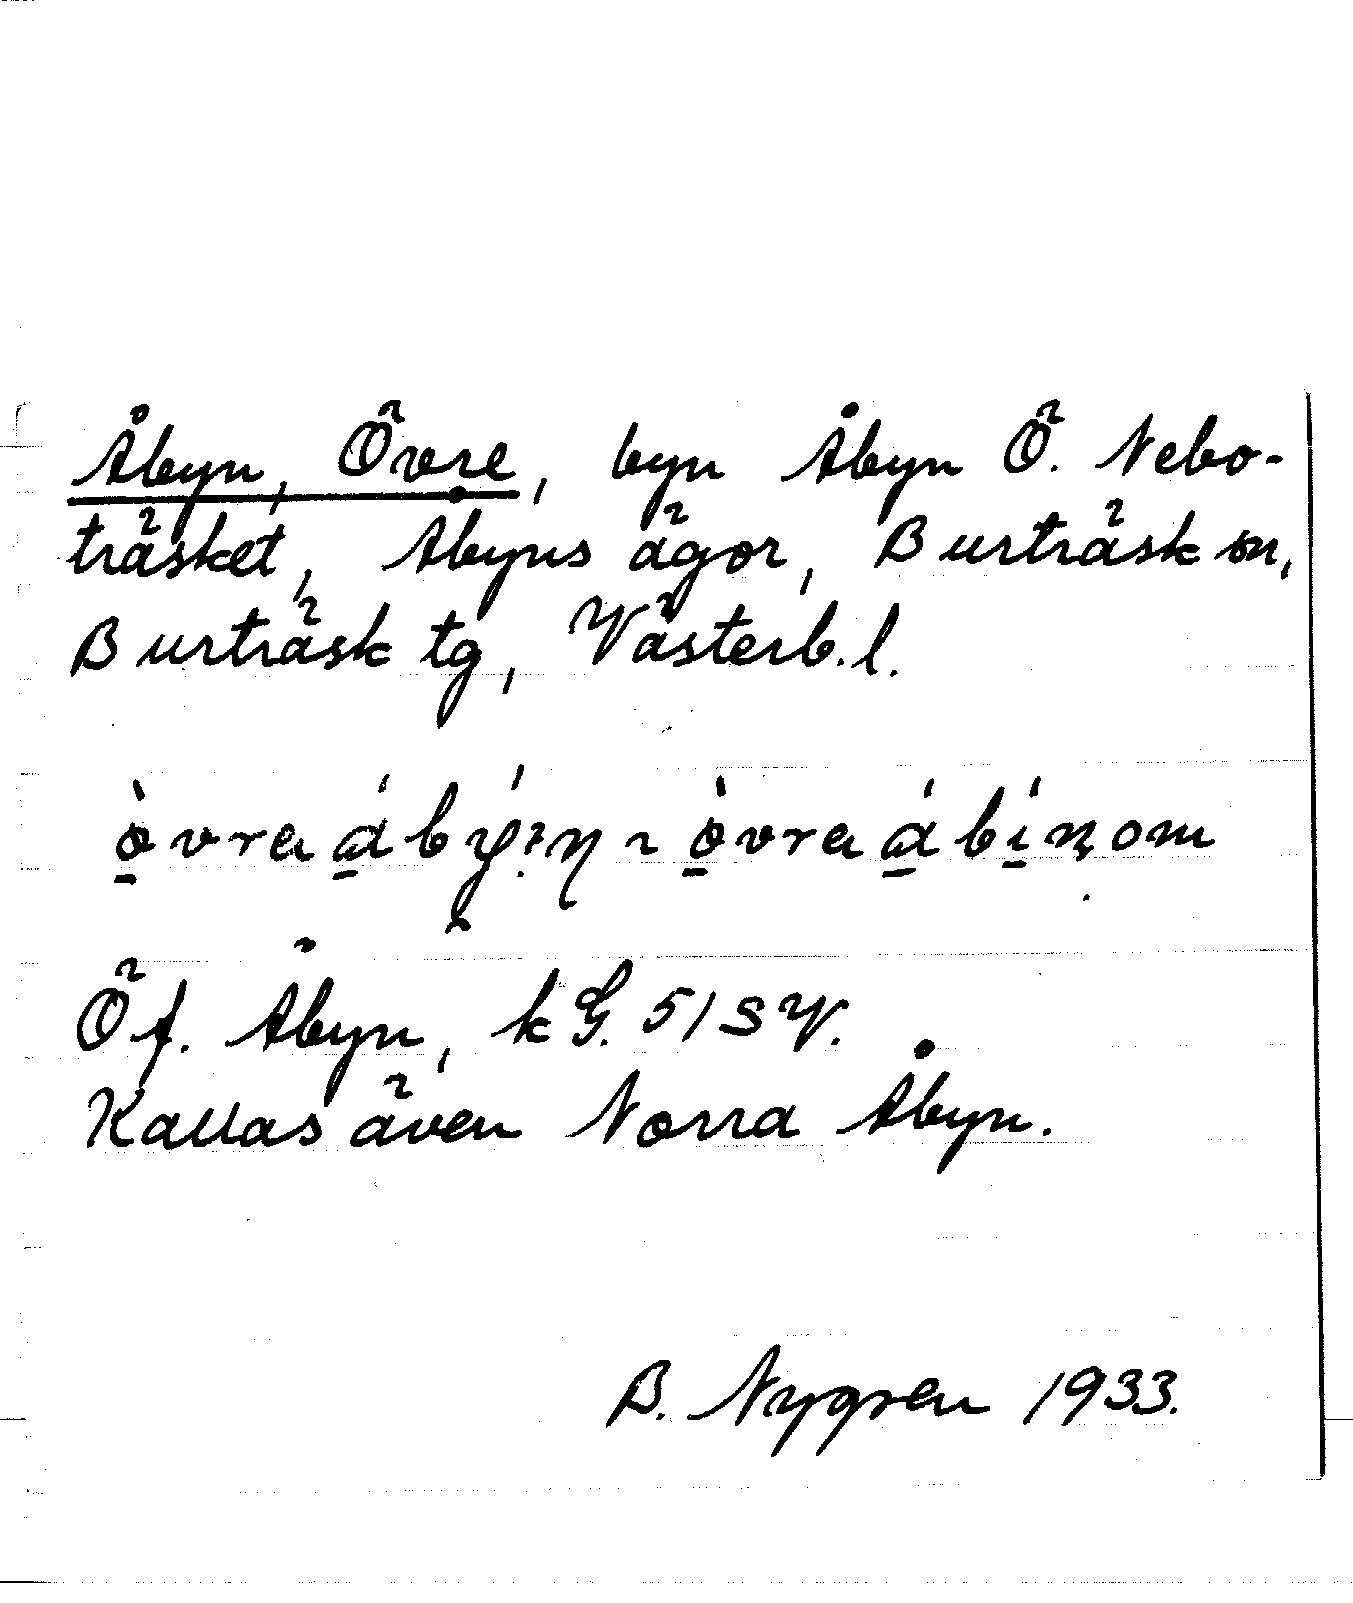 Åbyn, Övre, byn Åbyn Ö. Nebo-
träsket, Åbyns ägor, Burträsk sn,
Burträsk tg, Västerb. l.
Öf. Åbyn, kG. 51 SV.
Kallas även Norra Åbyn.
B. Nygren 1933.